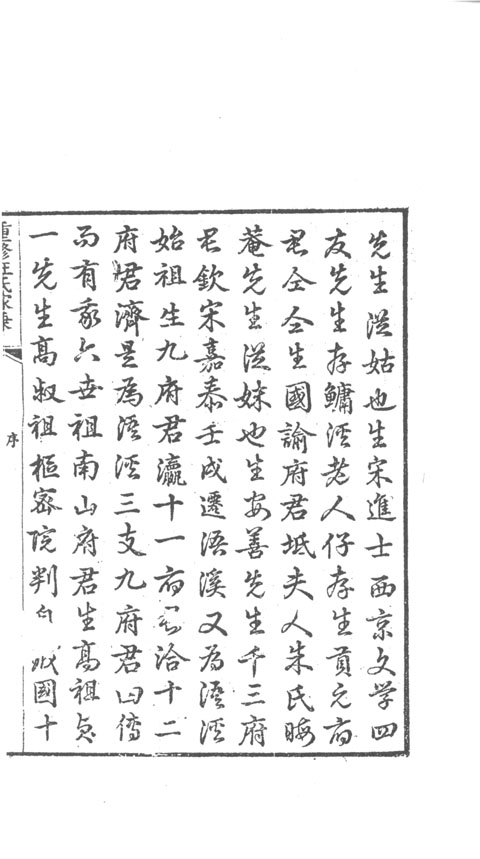 先生從姑也生宋進士西京文学四
友先生存鱅溪老人仔存生貢元府
君仝仝生國諭府君坻夫人朱氏晦
菴先生從妹也生安善先生千三府
君欽宋嘉泰壬戌遷浯溪又為浯溪
始祖生九府君瀛十一府君洽十二
府君濟是為浯溪三支九府君四傳
而有我六世祖南山府君生高祖貞
一先生高叔祖樞密院判國十
重修汪氏家乘
序